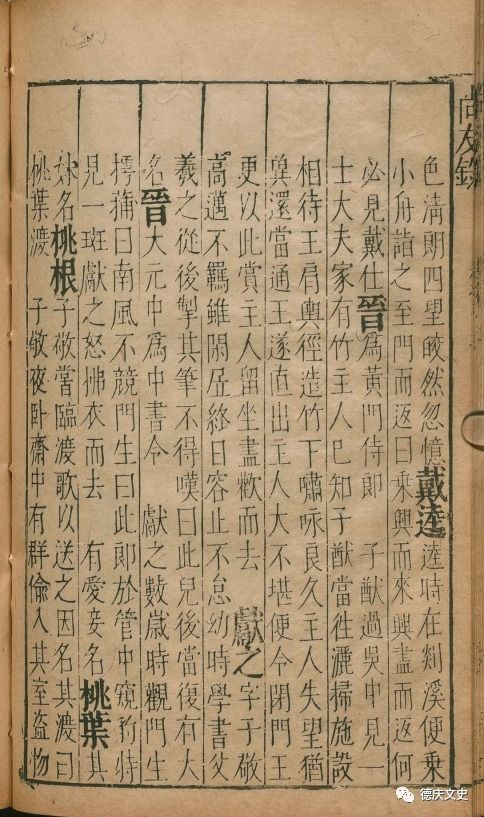 尚友錄
色清朗四望皎然忽憶戴逵逵時在剡溪便乘
小舟詣之至門而返曰乘興而來興盡而返何
必見戴仕晉爲黃門侍郎　子猷過吳中見一
士大夫家有竹主人已知子猷當徃灑掃施設
相待王肩輿徑造竹下嘯咏良久主人失望猶
兾還當通王遂直出主人大不堪便令閉門王
更以此賞主人留坐盡歡而去　獻之字子敬
高邁不羈雖閑居終日容止不怠幼時學書父
羲之從後掣其筆不得嘆曰此兒後當復有大
名晉大元中爲中書令　獻之數歲時觀門生
樗蒱曰南風不競門生曰此郎於管中窺豹特
見一斑獻之怒拂衣而去　有愛妾名桃葉其
妹名桃根子敬嘗臨渡歌以送之因名其渡曰
桃葉渡　子敬夜卧齋中有群偷入其室盜物
德庆文史